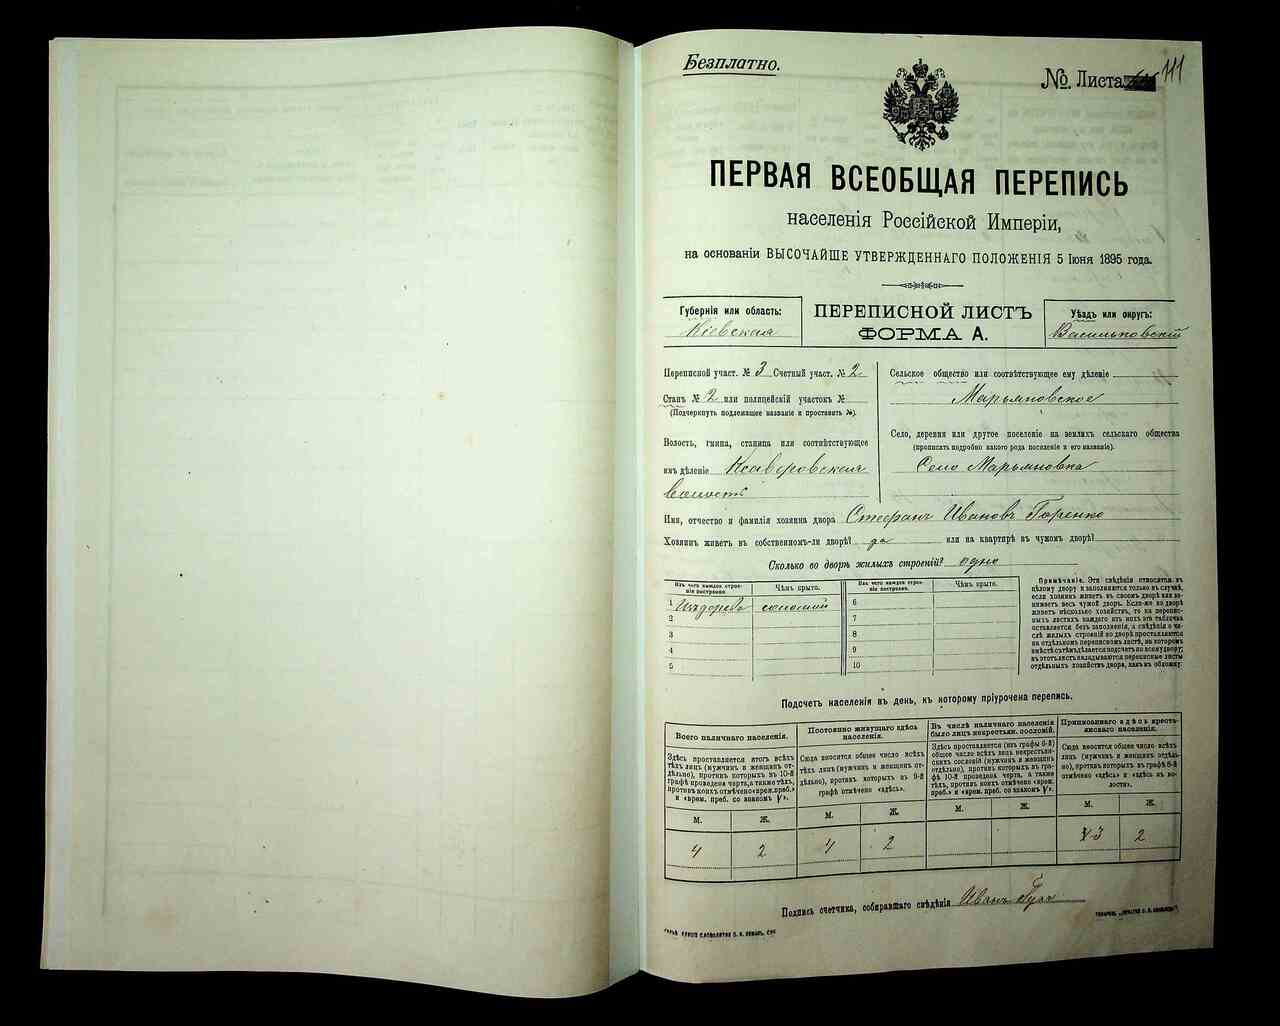 Безплатно.
№ Листа 111
ПЕРВАЯ ВСЕОБЩАЯ ПЕРЕПИСЬ
населенія Россійской Имперіи,
на основаніи ВЫСОЧАЙШЕ УТВЕРЖДЕННАГО ПОЛОЖЕНІЯ 5 Іюня 1895 года.
Губернія или область:
Кіевская
ПЕРЕПИСНОЙ ЛИСТЪ
ФОРМА А.
Уѣздъ или округъ:
Васильковскій
Переписной участ. № 3 Счетный участ. № 2
Станъ № 2 или полицейскій участокъ №
(Подчеркнуть подлежащее названіе и проставить №).
Волость, гмина, станица или соотвѣтствующее
имъ дѣленіе Ксаверовская
волость
Сельское общество или соотвѣтствующее ему дѣленіе
Марьяновское
Село, деревня или другое поселеніе на земляхъ сельскаго общества
(прописать подробно какого рода поселеніе и его названіе).
Село Марьяновка
Имя, отчество и фамилія хозяина двора Стефанъ Ивановъ Горенко
Хозяинъ живетъ въ собственномъ-ли дворѣ? да или на квартирѣ въ чужомъ дворѣ?
Сколько во дворѣ жилыхъ строеній? одно
Изъ чего каждое строеніе построено.
Чѣмъ крыто.
Изъ чего каждое строеніе построено.
Чѣмъ крыто.
1 Изъ дерева соломой 6
2 7
3 8
4 9
5 10
Примѣчаніе. Эти свѣдѣнія относятся къ
цѣлому двору и заполняются только въ случаѣ,
если хозяинъ живетъ въ своемъ дворѣ или занимаетъ
весь чужой дворъ. Если-же во дворѣ
живетъ нѣсколько хозяйствъ, то на переписныхъ
листахъ каждаго изъ нихъ эта табличка
оставляется безъ заполненія, а свѣдѣнія о числѣ
жилыхъ строеній во дворѣ проставляются
на отдѣльномъ переписномъ листѣ, на которомъ
вмѣстѣ съ тѣмъ дѣлается подсчетъ по всему двору;
въ этотъ листъ вкладываются переписные листы
отдѣльныхъ хозяйствъ двора, какъ въ обложку.
Подсчетъ населенія въ день, къ которому пріурочена перепись.
Всего наличнаго населенія.
Здѣсь проставляется итогъ всѣхъ
тѣхъ лицъ (мужчинъ и женщинъ отдѣльно),
противъ которыхъ въ 10-й
графѣ проведена черта, а также тѣхъ,
противъ коихъ отмѣчено «врем. преб.»
и «врем. преб. со знакомъ V».
Постоянно живущаго здѣсь
населенія.
Сюда вносится общее число всѣхъ
тѣхъ лицъ (мужчинъ и женщинъ отдѣльно),
противъ которыхъ въ 9-й
графѣ отмѣчено «здѣсь».
Въ числѣ наличнаго населенія
было лицъ некрестьян. сословій.
Здѣсь проставляется (изъ графы 6-й)
общее число всѣхъ лицъ некрестьянскихъ
сословій (мужчинъ и женщинъ
отдѣльно), противъ которыхъ въ графѣ
10 проведена черта, а также
тѣхъ, противъ коихъ отмѣчено «врем.
преб.» и «врем. преб. со знакомъ V».
Приписаннаго здѣсь крестьянскаго
населенія.
Сюда вносится общее число всѣхъ
лицъ (мужчинъ и женщинъ отдѣльно),
противъ которыхъ въ графѣ 8-й
отмѣчено «здѣсь» и «здѣсь въ волости».
М. Ж. М. Ж. М. Ж. М. Ж.
4 2 4 2 3 2
Подпись счетчика, собиравшаго свѣдѣнія Иванъ